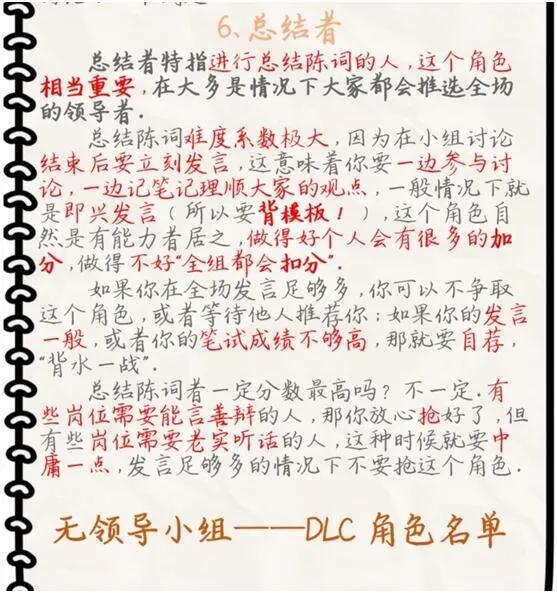 6.总结者
总结者特指进行总结陈词的人,这个角色
相当重要,在大多是情况下大家都会推选全场
的领导者.
总结陈词难度系数极大,因为在小组讨论
结束后要立刻发言,这意味着你要一边参与讨
论,一边记笔记理顺大家的观点,一般情况下就
是即兴发言(所以要背模板!),这个角色自
然是有能力者居之,做得好个人会有很多的加
分,做得不好“全组都会扣分”.
如果你在全场发言足够多,你可以不争取
这个角色,或者等待他人推荐你;如果你的发言
一般,或者你的笔试成绩不够高,那就要自荐,
“背水一战”.
总结陈词者一定分数最高吗?不一定.有
些岗位需要能言善辩的人,那你放心抢好了,但
有些岗位需要老实听话的人,这种时候就要中
庸一点,发言足够多的情况下不要抢这个角色.
无领导小组——DLC 角色名单